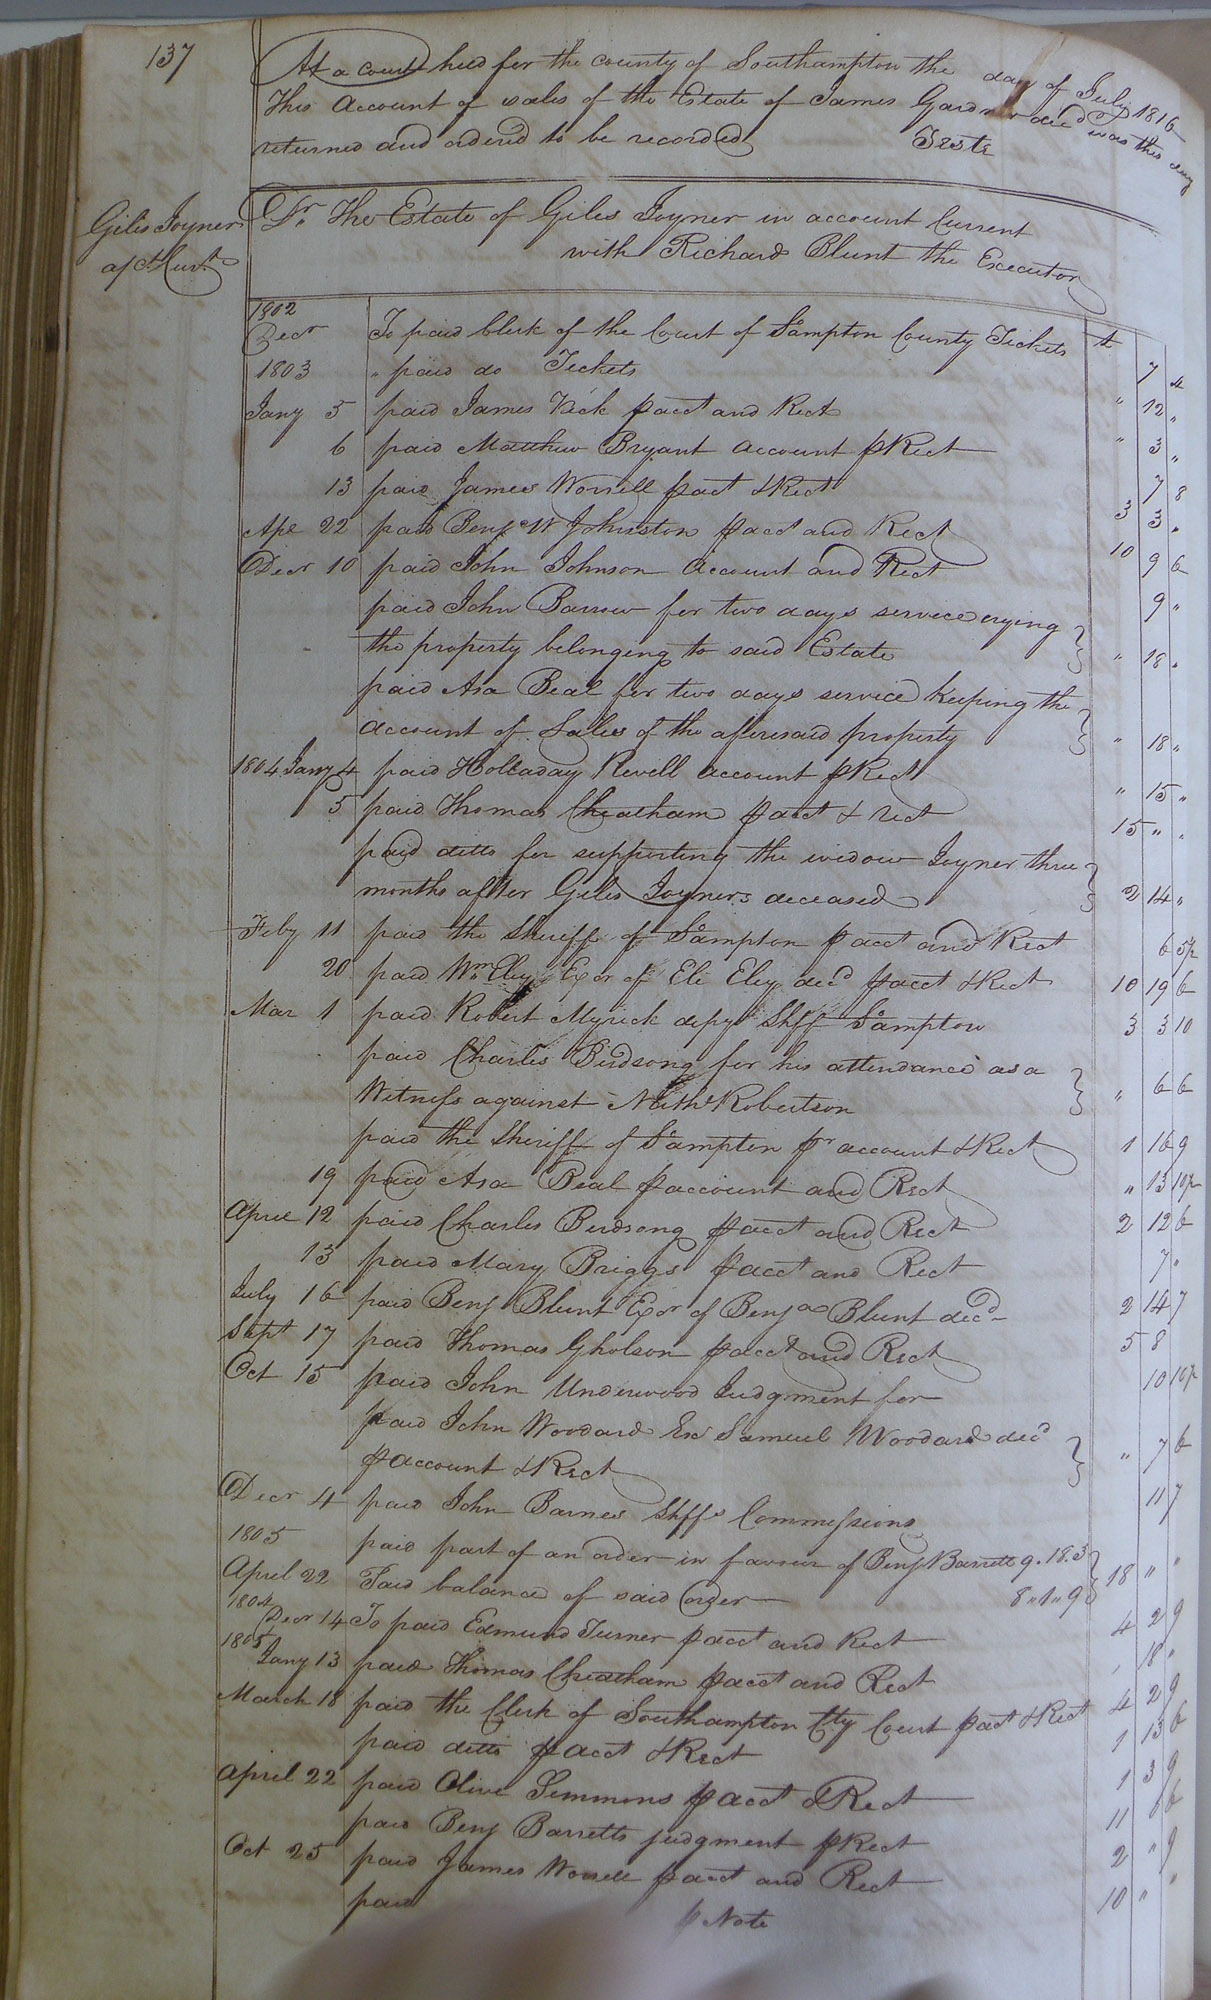 137
At a court held for the county of Southampton the day of July 1816
This Account of sales of the Estate of James Gardner decd was this day
returned and ordered to be recorded Teste
Giles Joyner
a/c Curt
Dr. The Estate of Giles Joyner in account Current
with Richard Blunt the Executor
1802
Decr To paid Clerk of the Court of S'ampton County Tickets £ 7 4
1803 " paid do Tickets " 12 "
Jany 5 paid James Vick p acct and Rect " 3 "
6 paid Matthew Bryant account p Rect 7 8
13 paid James Worrell p acct & Rect 3 3 "
Apl 22 paid Benj W Johnston p acct and Rect 10 9 6
Decr 10 paid John Johnson Account and Rect 9 "
paid John Barrow for two days service crying
the property belonging to said Estate " 18 "
paid Asa Beal for two days service keeping the
account of Sales of the aforesaid property " 18 "
1804 Jany 4 paid Holladay Revell account p Rect " 15 "
5 paid Thomas Cheatham p acct & rect 15 " "
paid ditto for supporting the widow Joyner three
months after Giles Joyners deceased 2 14 "
Feby 11 paid the Sheriff of S'ampton p acct and Rect 6 5½
20 paid Wm Eley Exor of Eli Eley decd p acct & Rect 10 19 6
Mar 1 paid Robert Myrick depy Shff S'ampton 3 3 10
paid Charles Birdsong for his attendance as a
Witness against Nathl Robertson " 6 6
paid the Sheriff of S'ampton pr account & Rect 1 16 9
19 paid Asa Beal p account and Rect " 13 10½
April 12 paid Charles Birdsong p acct and Rect 2 12 6
13 paid Mary Briggs p acct and Rect 7 "
July 16 paid Benj Blunt Exor of Benja Blunt decd 2 14 7
Sept 17 paid Thomas Gholson p acct and Rect 5 8
Oct 15 paid John Underwood Judgment for 10 10½
paid John Woodard Exr Samuel Woodard decd
p account & Rect " 7 6
Decr 4 paid John Barnes Shffs Commissions 11 7
1805 paid part of an order in favour of Benj Barrett 9.18.3
April 22 Paid balance of said order 8 " 1 " 9 18 " "
1804
Decr 14 To paid Edmund Turner p acct and Rect 4 2 9
1805
Jany 13 paid Thomas Cheatham p acct and Rect 18 "
March 18 paid the Clerk of Southampton Cty Court p act & Rect 4 2 9
paid ditto p acct & Rect 1 13 6
April 22 paid Olive Simmons p acct & Rect 1 3 9
paid Benj Barretts judgment p Rect 11 6
Oct 25 paid James Worrell p acct and Rect 2 " 9
paid p Note 10 " "